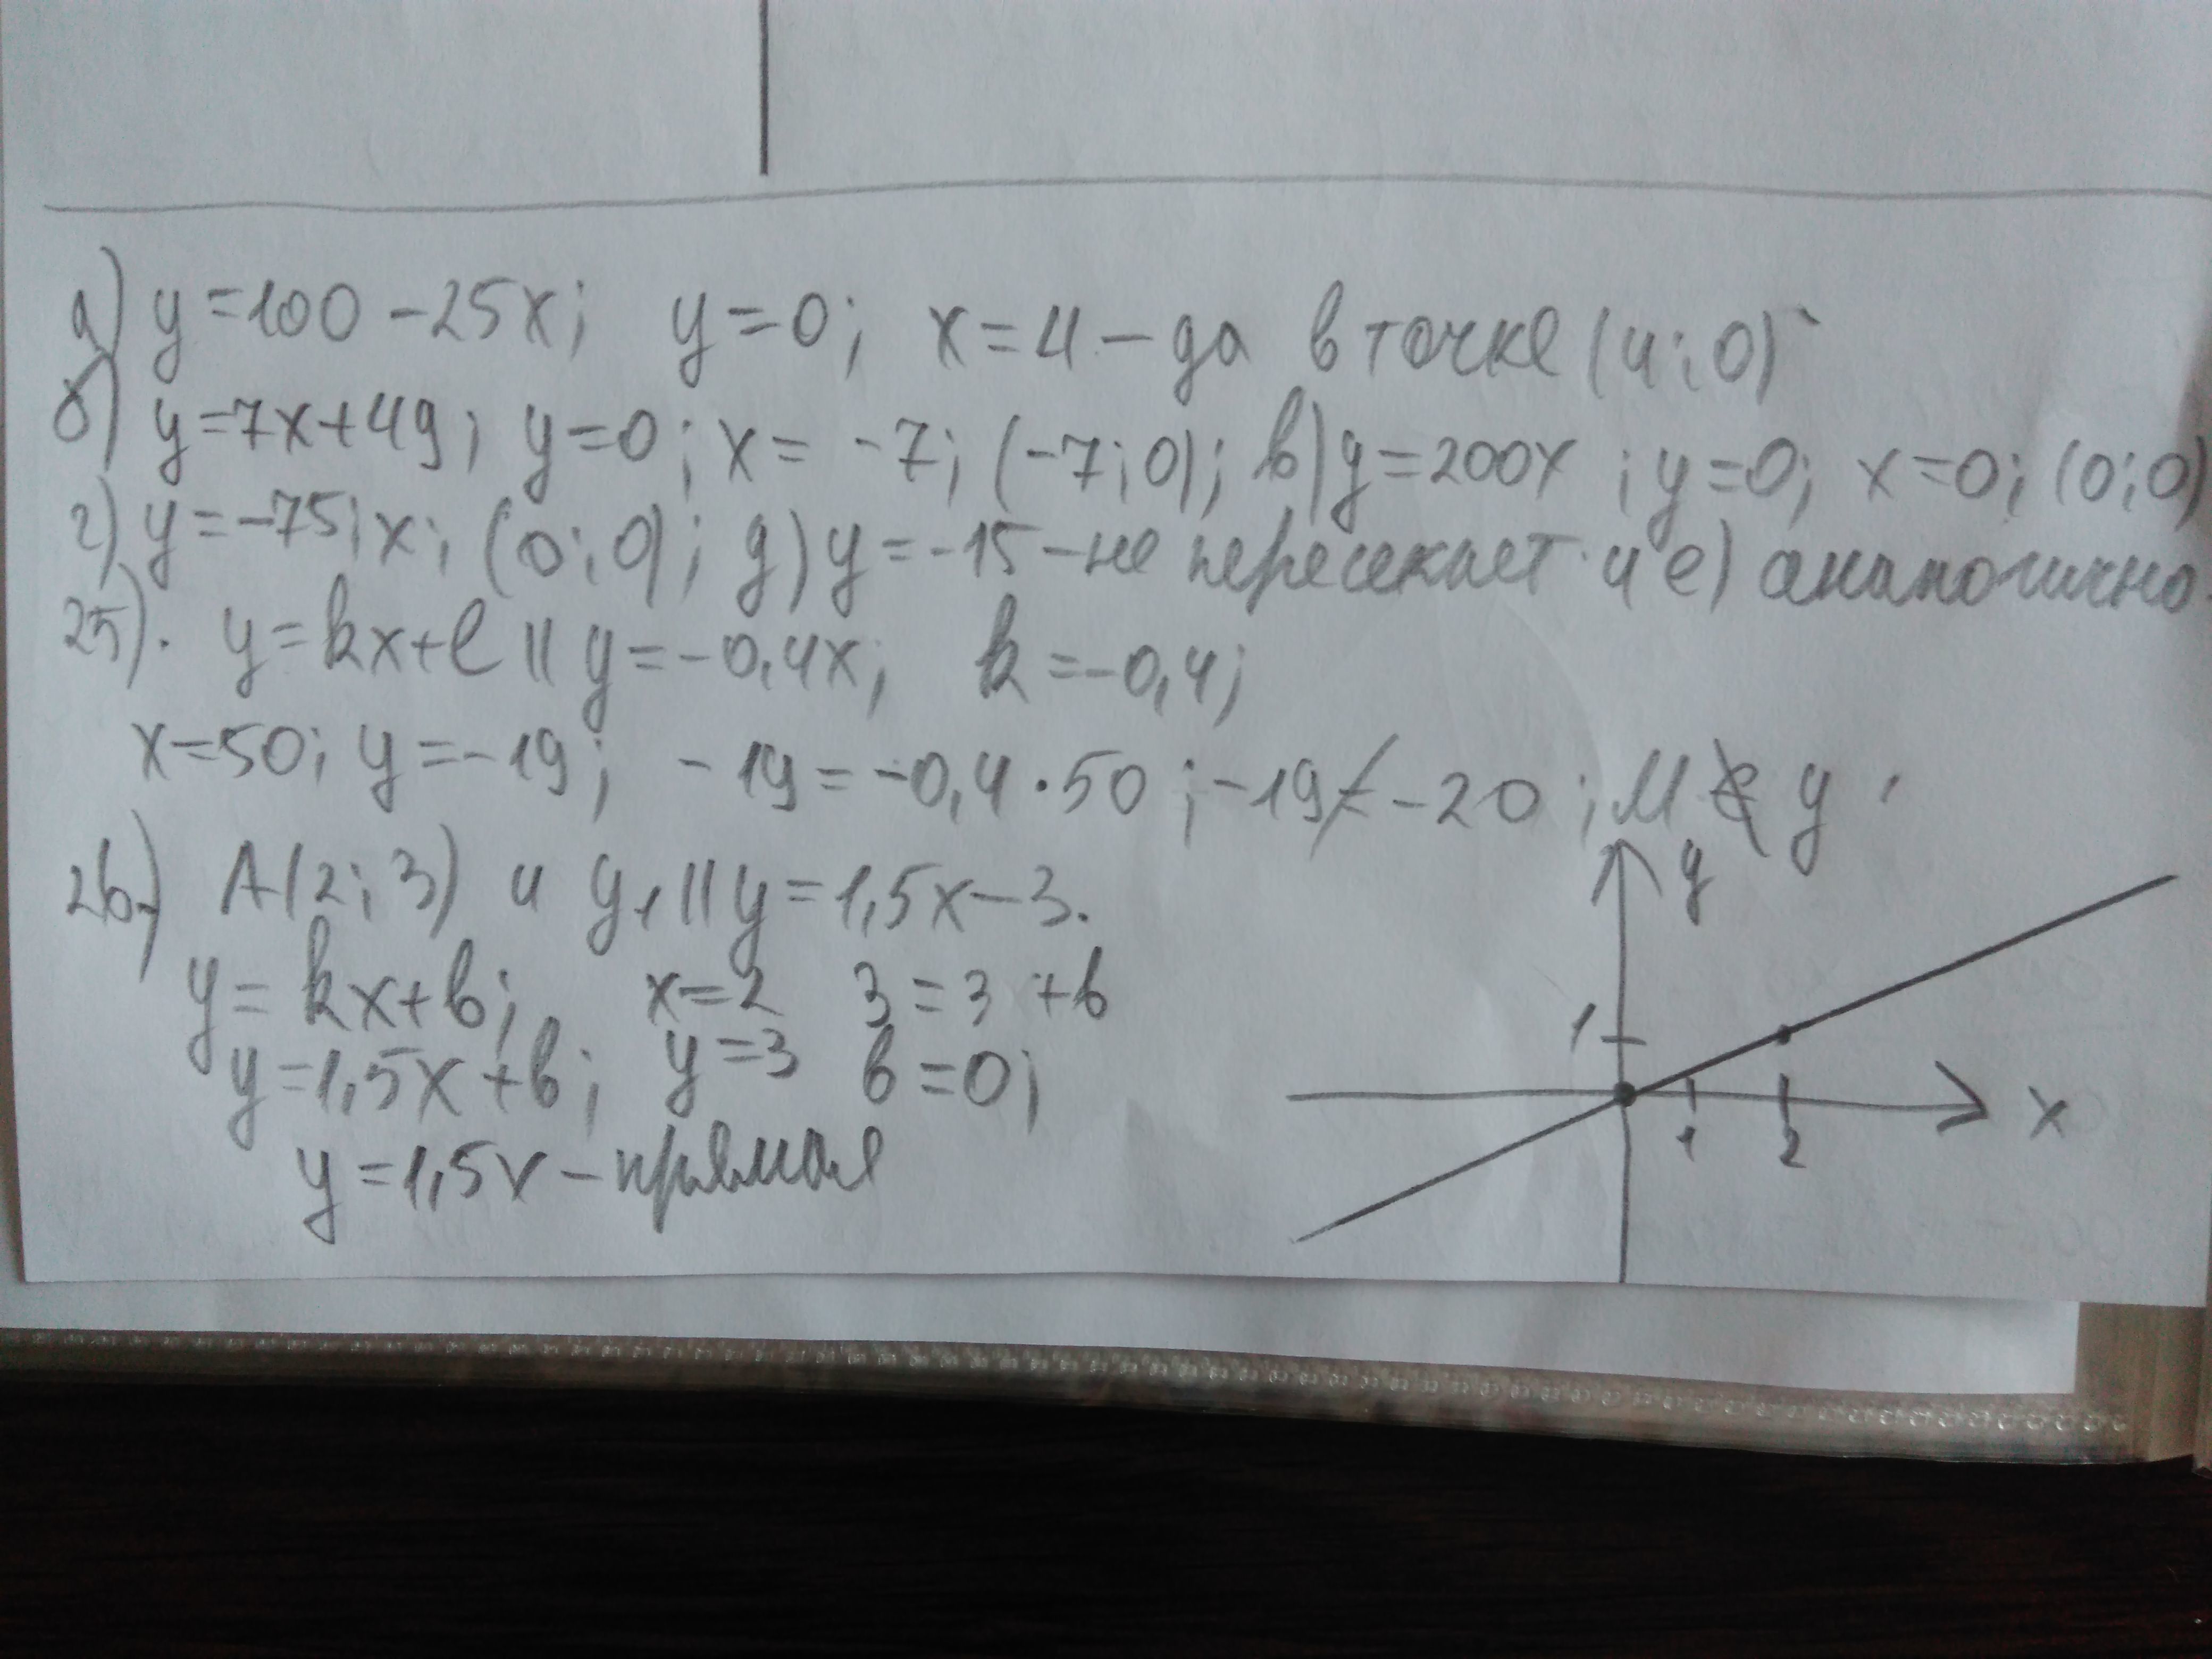 а) y=100-25x; y=0; x=4-да в точке (4;0)
б) y=7x+49; y=0; x= -7; (-7;0); в) y=200x ; y=0; x=0; (0;0)
г) y=-75;x; (0;0); д) y=-15-не пересекает и е) аналогично.
25). y=kx+l || y=-0,4x; k=-0,4;
x=50; y=-19; -19=-0,4·50; -19≠-20; M ∉ y
26) A(2;3) и y₁||y=1,5x-3.
y= kx+b; x=2 3=3+b
y=1,5x+b; y=3 b=0;
y=1,5x-прямая
y
1
1 2
x